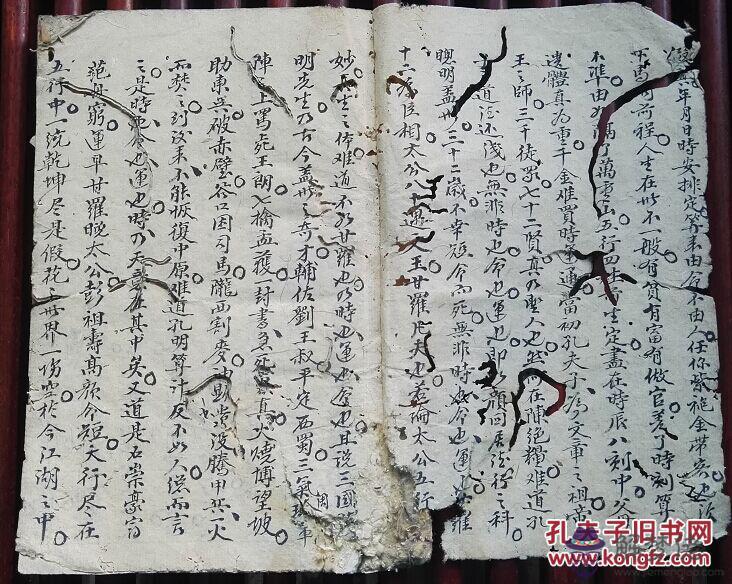 年月日時安排定算來由命不由人任你紫袍金帶
前程人生在世不一般有貧有富有做官差了時刻算
不準由如隔了萬重山五行四柱生定盡在時辰八刻中
遺體真为重千金難買時年通當初孔夫子为文章之祖
王之師三千徒眾七十二賢真乃聖人也然而在陳絕糧難道孔
道法不浅也無非時也命也運也即顏回居德行之科
聰明盖世三十二歲不幸短命而死無非時也命也運也甘羅
十二为臣相太公八十遇文王甘羅凡夫也若論太公五行
妙之体難道不如甘羅也乃時也運也命也且說三國
明先生乃古今盖世之奇才輔佐劉王叔平定西蜀三氣
陣上罵死王朗七擒孟獲一封書真火燒博望坡
助東吳破赤壁谷口困司馬隴西割麥沒騰甲兵一火
而焚之到後來不能恢復中原難道孔明算計反不如人總而言
之是時也命也運也時乃天其中矣又道是石崇豪富
范丹窮運早甘羅晚太公彭祖壽高顏命短六行尽在
五行中一統乾坤尽是假花世界一場空於今江湖之中
孔夫子旧书网
www.kongfz.com